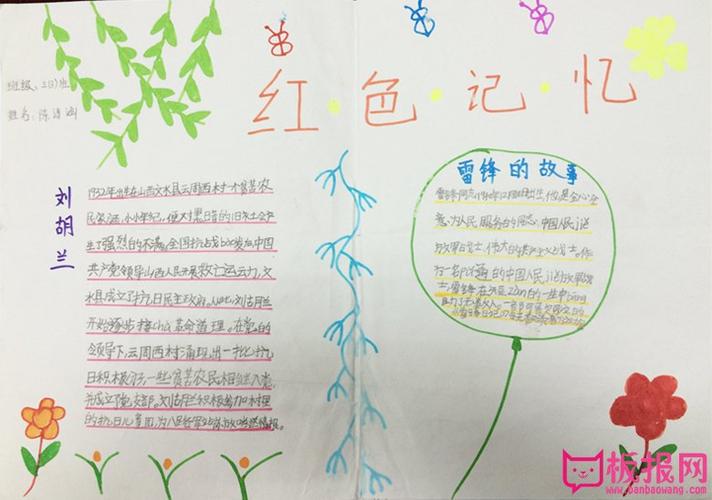 红·色·记·忆
班级:二(1)班
姓名:陈
刘胡兰
1932年出生在山西文水县云周西村一个贫苦农
民家庭。小小年纪,便对黑暗的旧社会产
生了强烈的不满。全国抗战bào发后中国
共产党领导山西人民开展救亡运动,文
水县成立了抗日民主政府。从此,刘胡兰
开始逐步接chù革命道理。在党的
领导下,云周西村涌现出一批抗
日积极分子,一些贫苦农民相继入党
并成立了党支部。刘胡兰积极参加村里
的抗日儿童团,为八路军站岗、放哨、送情报。
雷锋的故事
雷锋同志1940年12月18日出生,他是全心全
意为人民服务的同志,中国人民解
放军战士,伟大的共产主义战士。作
为一名普通的中国人民解放军战
士,雷锋在短zàn的一生中
助人无数
板报网
www.banbaowang.com